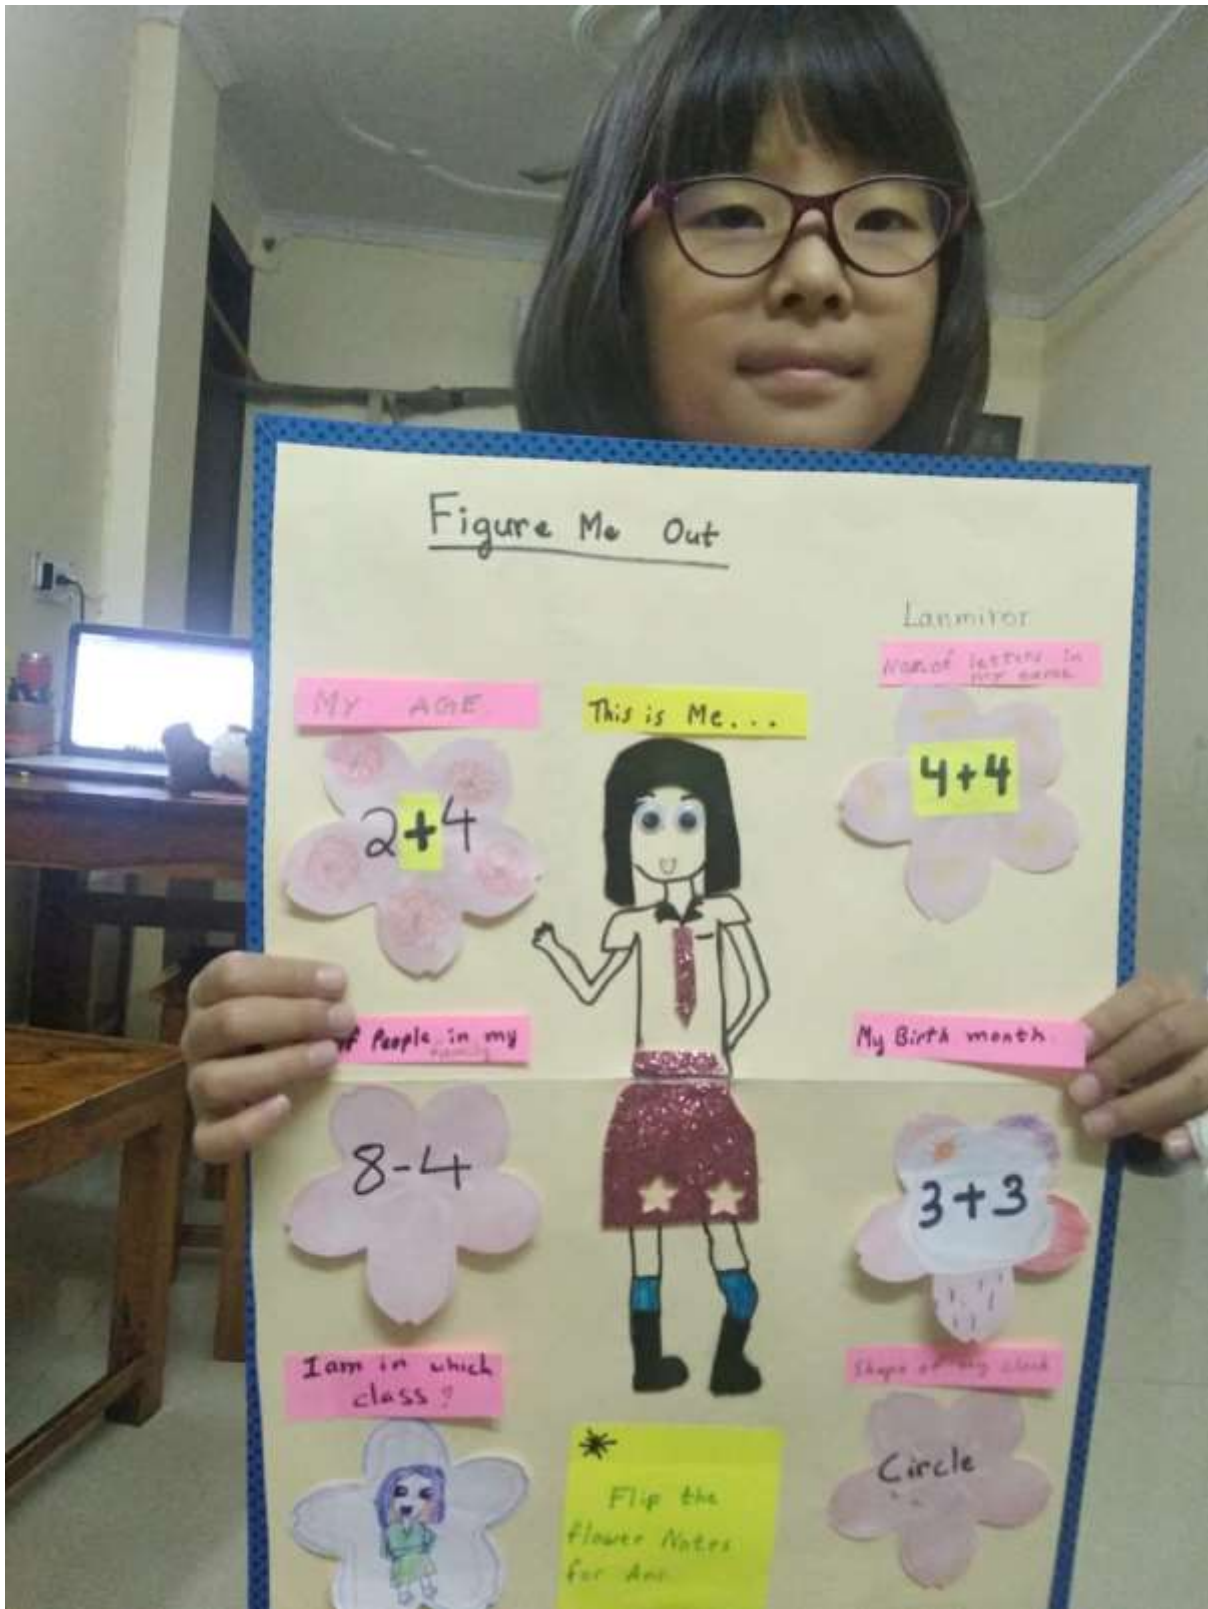 Figure Me Out
Lanmiror
No. of letters in
my name
MY AGE
This is Me...
4+4
2+4
of People in my
family
My Birth month
8-4
3+3
I am in which
class?
Shape of my clock
Circle
Flip the
flower Notes
for Ans